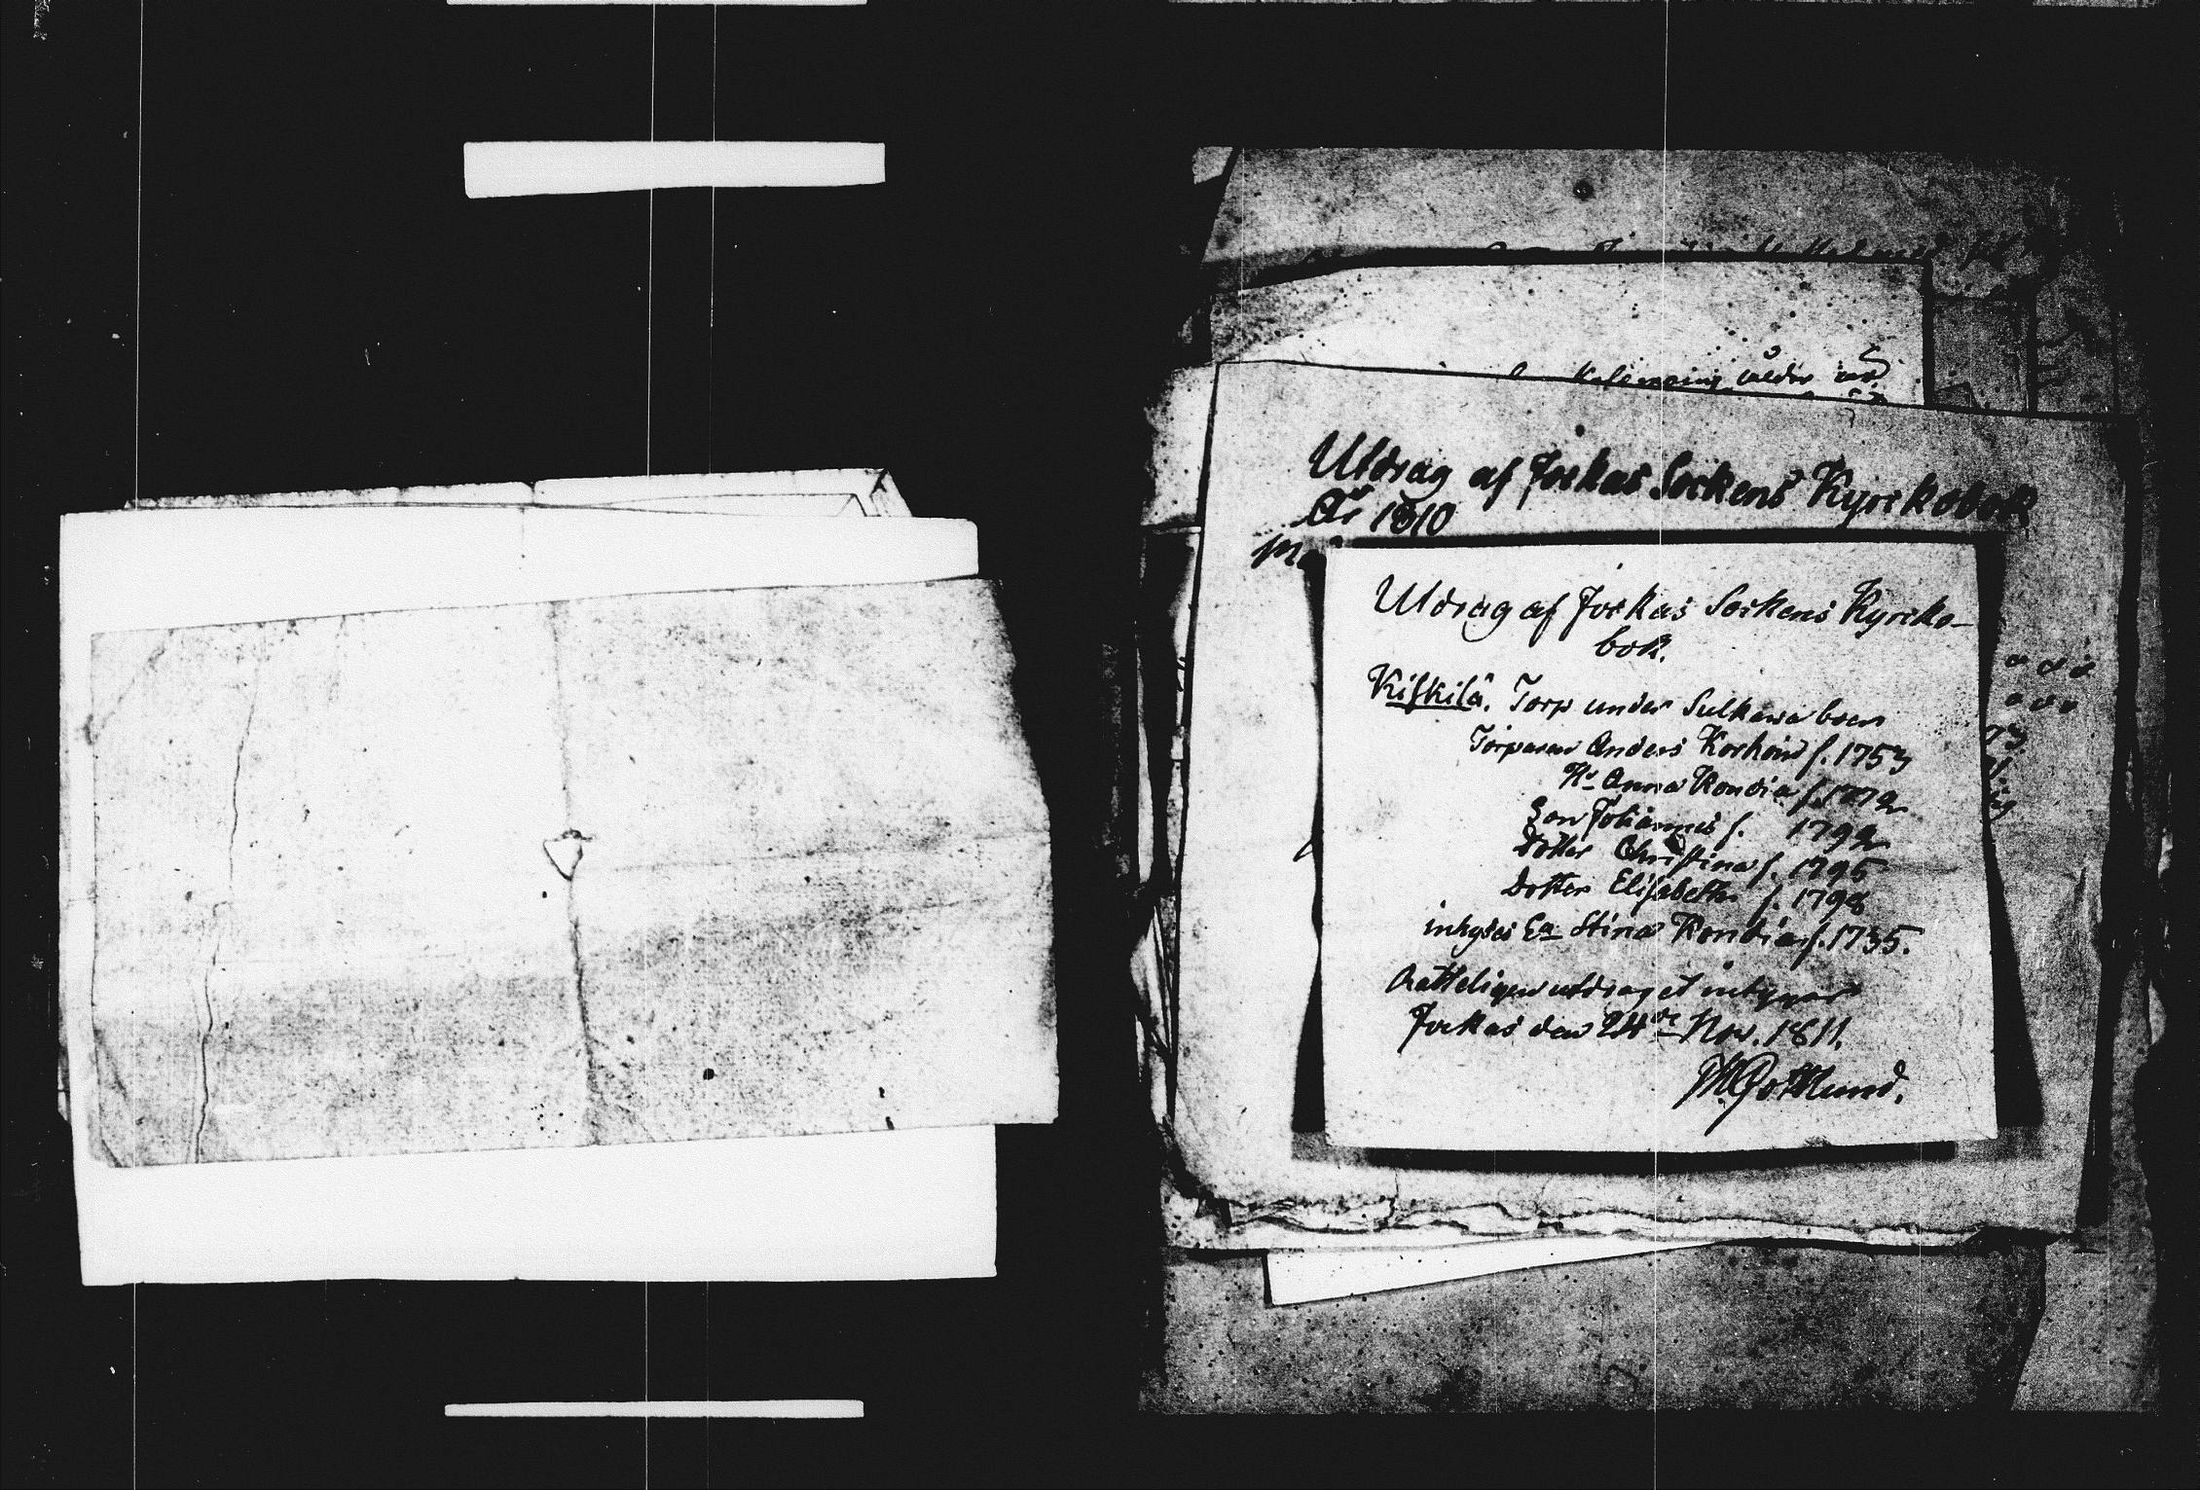 Utdrag af Jockas Sockens Kyrckobok
År 1810
Utdrag af Jockas Sockens Kyrcko-
bok.
Kifkilä. Torp under Sulkawa boen
Torparen Anders Korhoin f. 1753
Hu Anna Rondia f. 1772
Son Johannes f. 1792
Dotter Christina f. 1795
Dotter Elisabeth f. 1798
inhyses Ea Stina Rondia f. 1735.
Rätteligen utdraget intygar
Jockas den 24de Nov. 1811.
M. Gottlund.